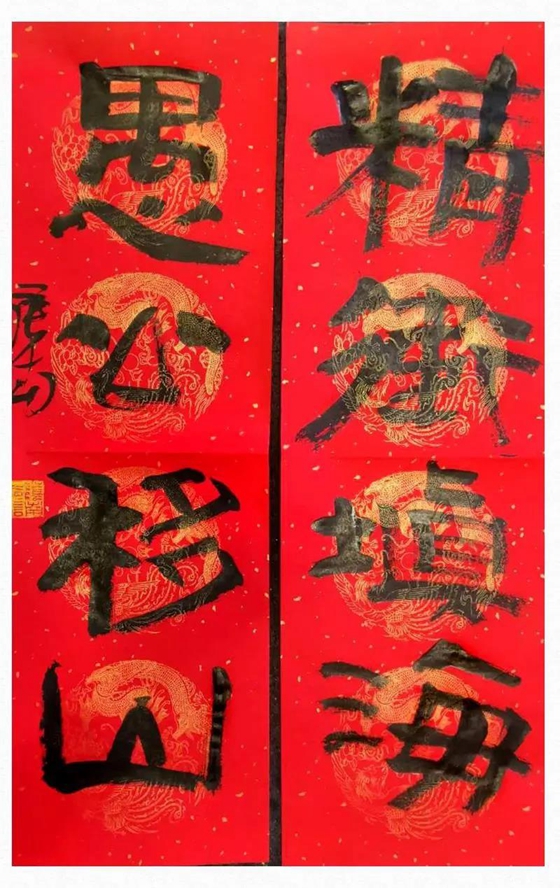 精衛填海
愚公移山